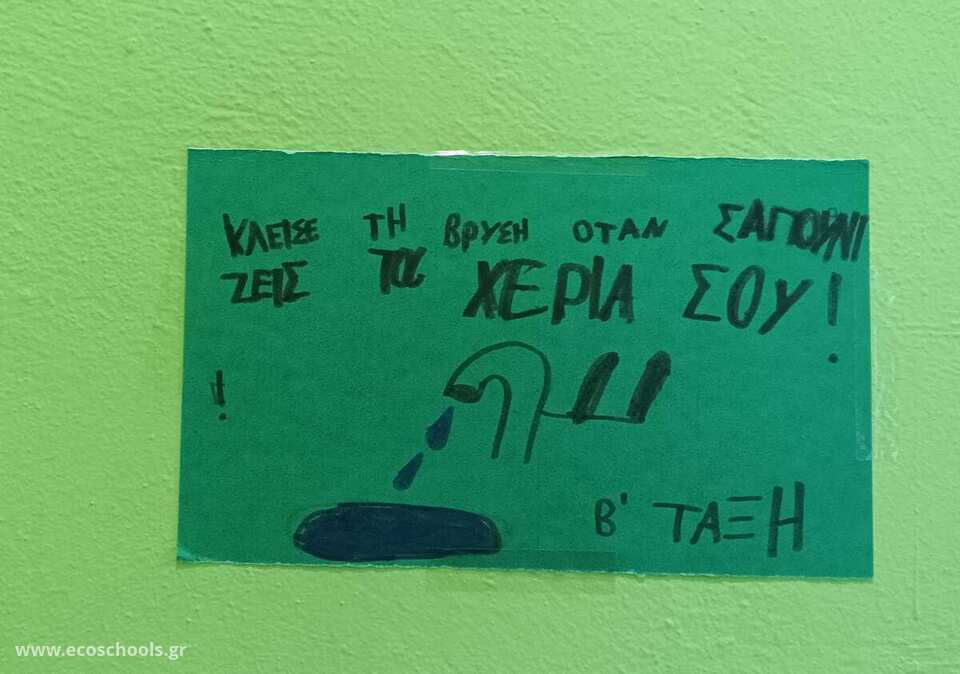 ΚΛΕΙΣΕ ΤΗ ΒΡΥΣΗ ΟΤΑΝ ΣΑΠΟΥΝΙ
ΖΕΙΣ ΤΑ ΧΕΡΙΑ ΣΟΥ!
!
Β' ΤΑΞΗ
www.ecoschools.gr